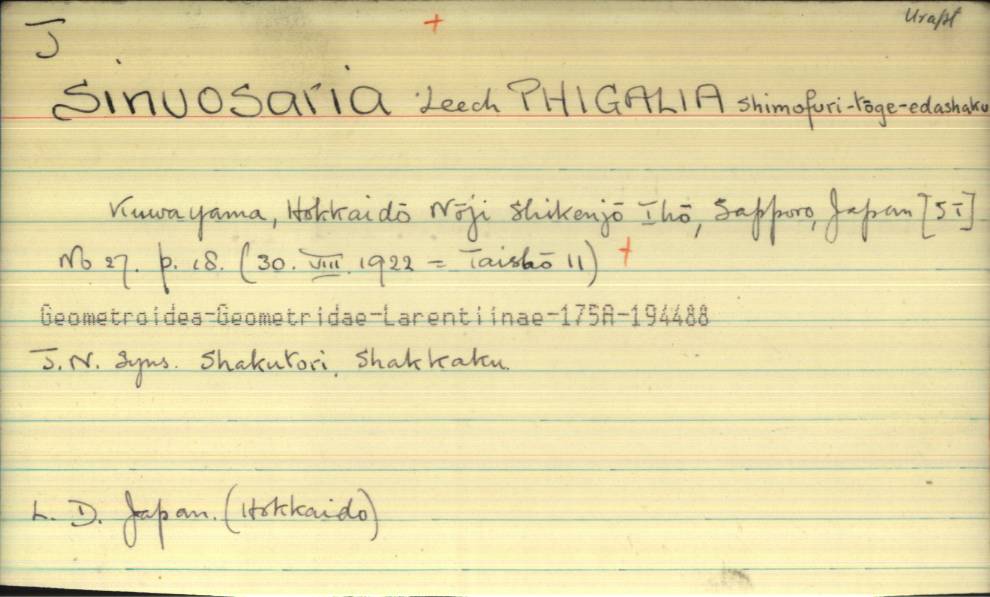 J + Urapt
sinuosaria Leech PHIGALIA shimofuri-tōge-edashaku
Kuwayama, Hokkaidō Nōji Shikenjō Ihō, Sapporo, Japan [5 I]
No 27. p. 18. (30. VIII. 1922 = Taishō 11) +
Geometroidea-Geometridae-Larentiinae-175A-194488
J.N. Syns. Shakutori, Shakkaku.
L. D. Japan. (Hokkaido)